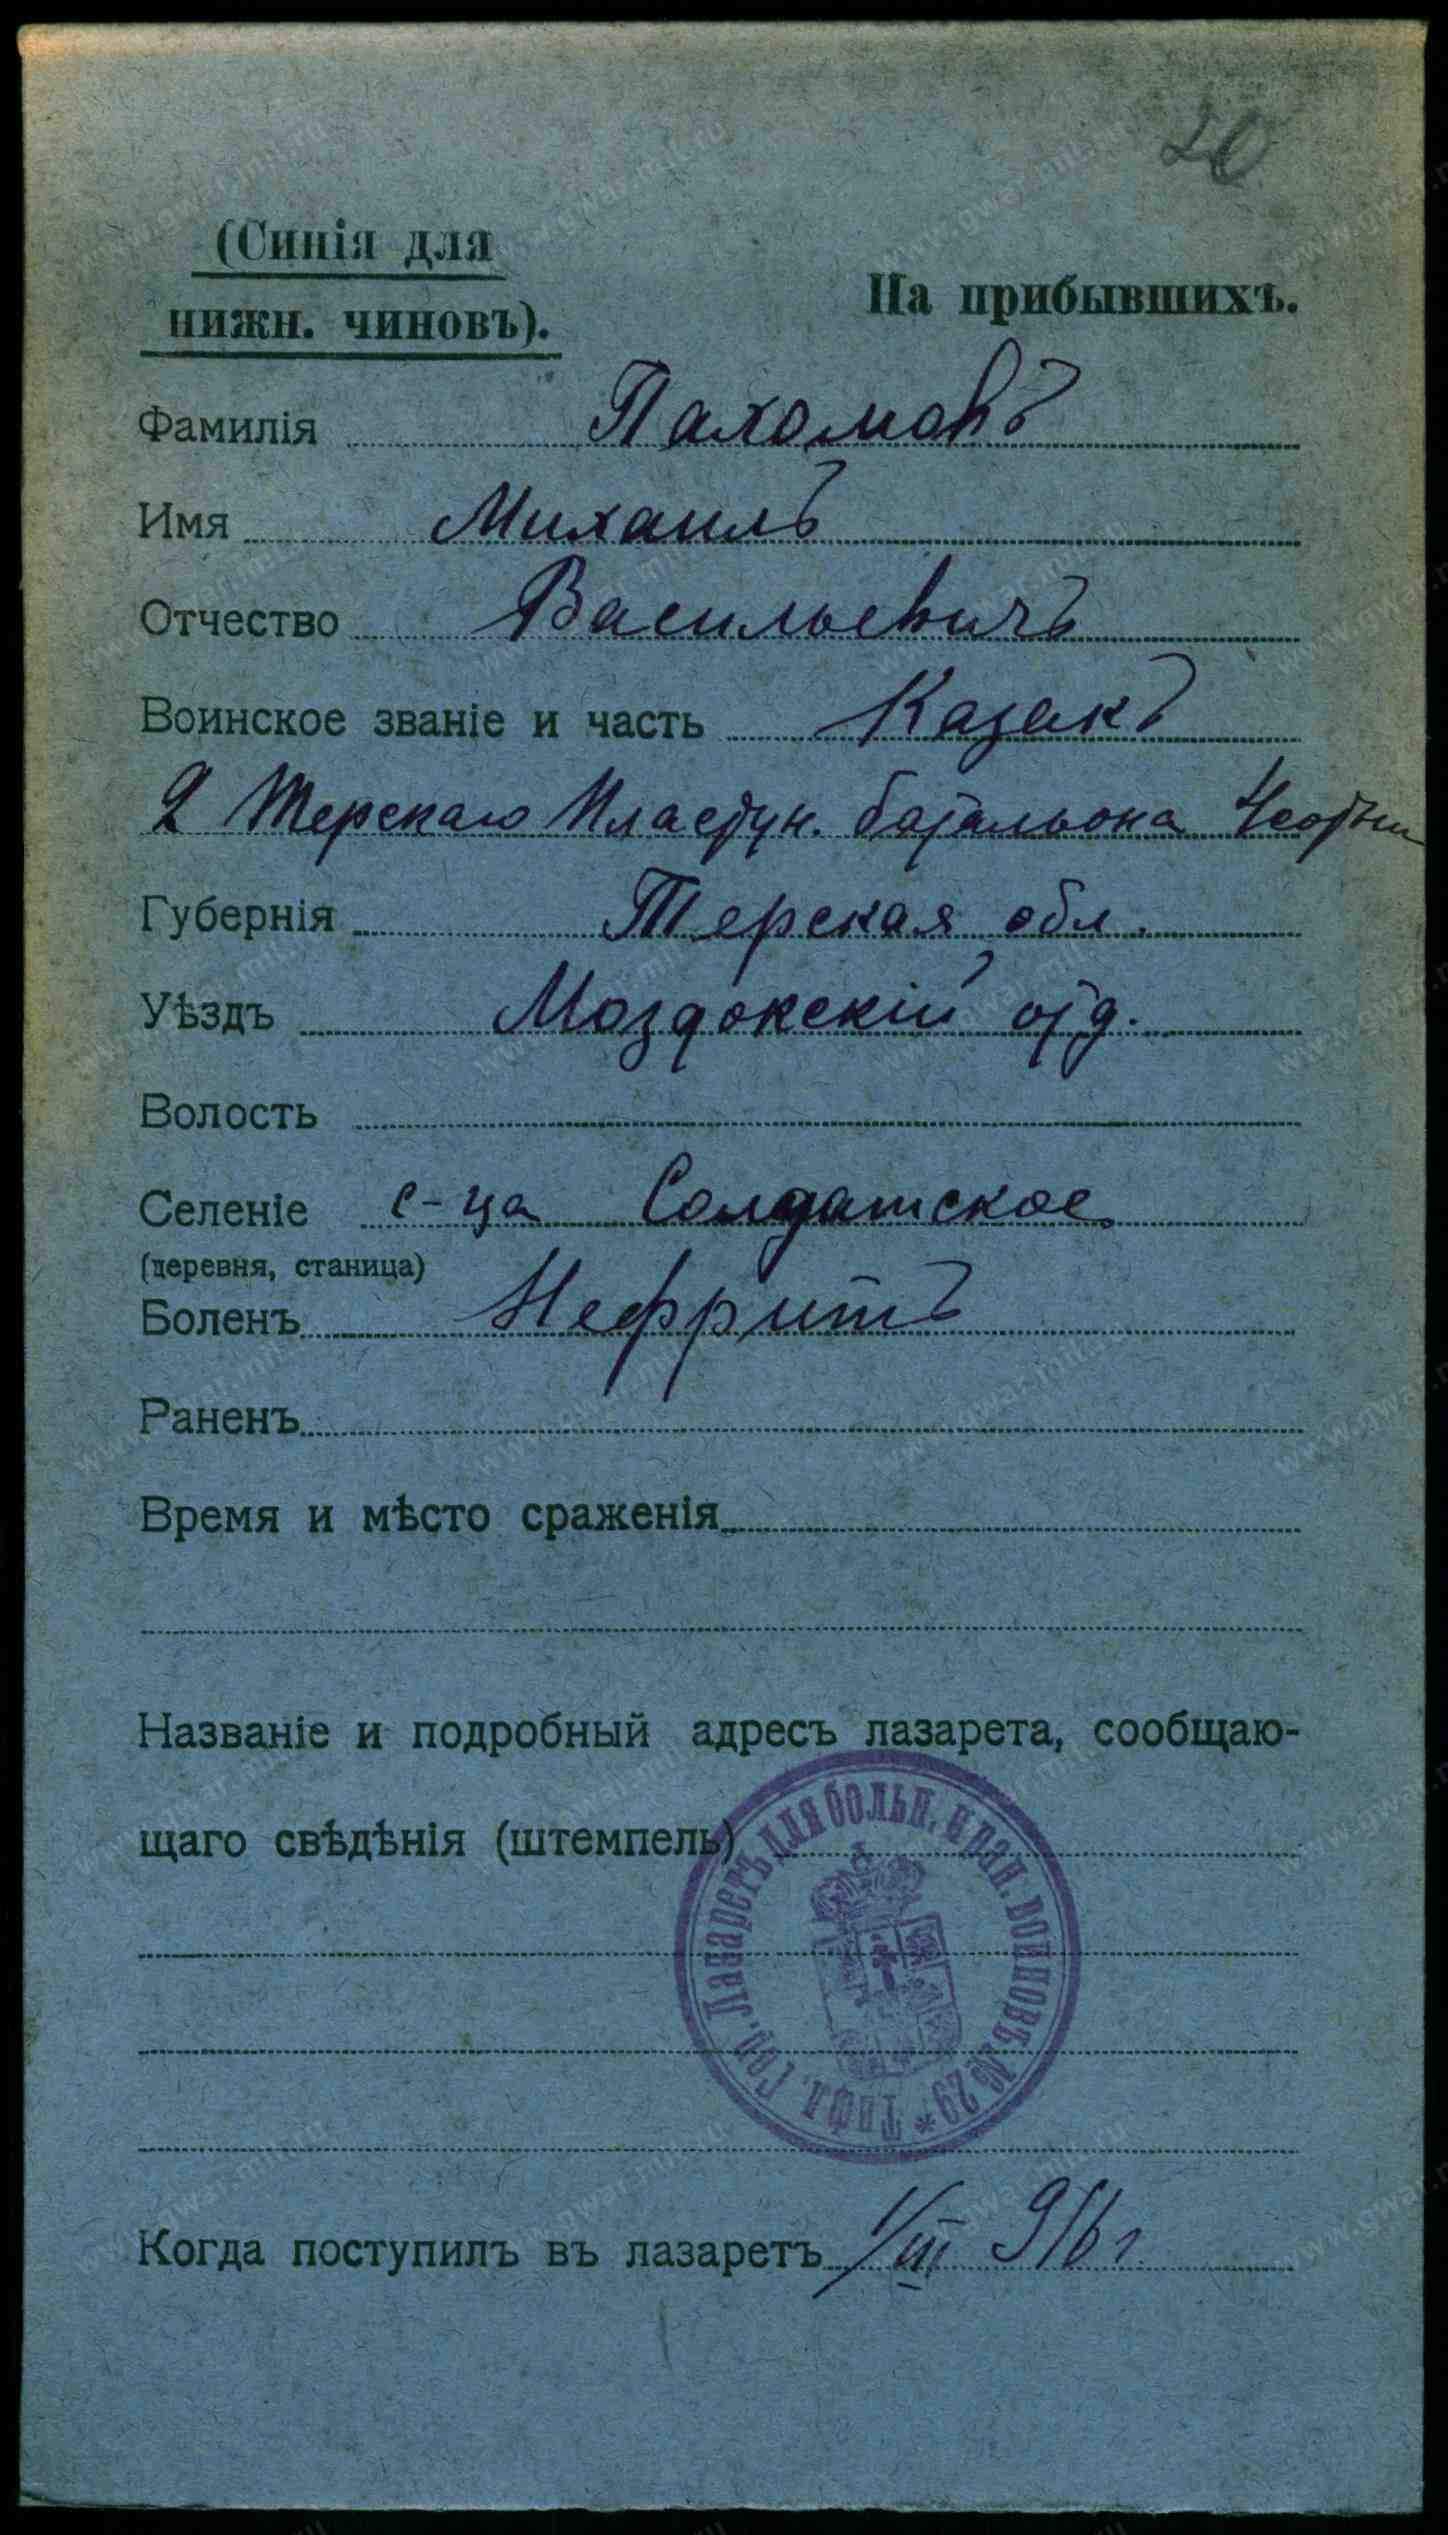 20
(Синія для
нижн. чиновъ).
На прибывшихъ.
Фамилія Пахомовъ
Имя Михаилъ
Отчество Васильевичъ
Воинское званіе и часть Казакъ
2 Терскаго Пластун. батальона 4 сотни
Губернія Терская обл.
Уѣздъ Моздокскій отд.
Волость
Селеніе с-ца Солдатское
(деревня, станица)
Боленъ Нефритъ
Раненъ
Время и мѣсто сраженія
Названіе и подробный адресъ лазарета, сообщаю-
щаго свѣдѣнія (штемпель)
Тифл. Гор. Лазаретъ для больн. и ран. воиновъ № 29 *
Когда поступилъ въ лазаретъ 1/III 916 г.
www.gwar.mil.ru